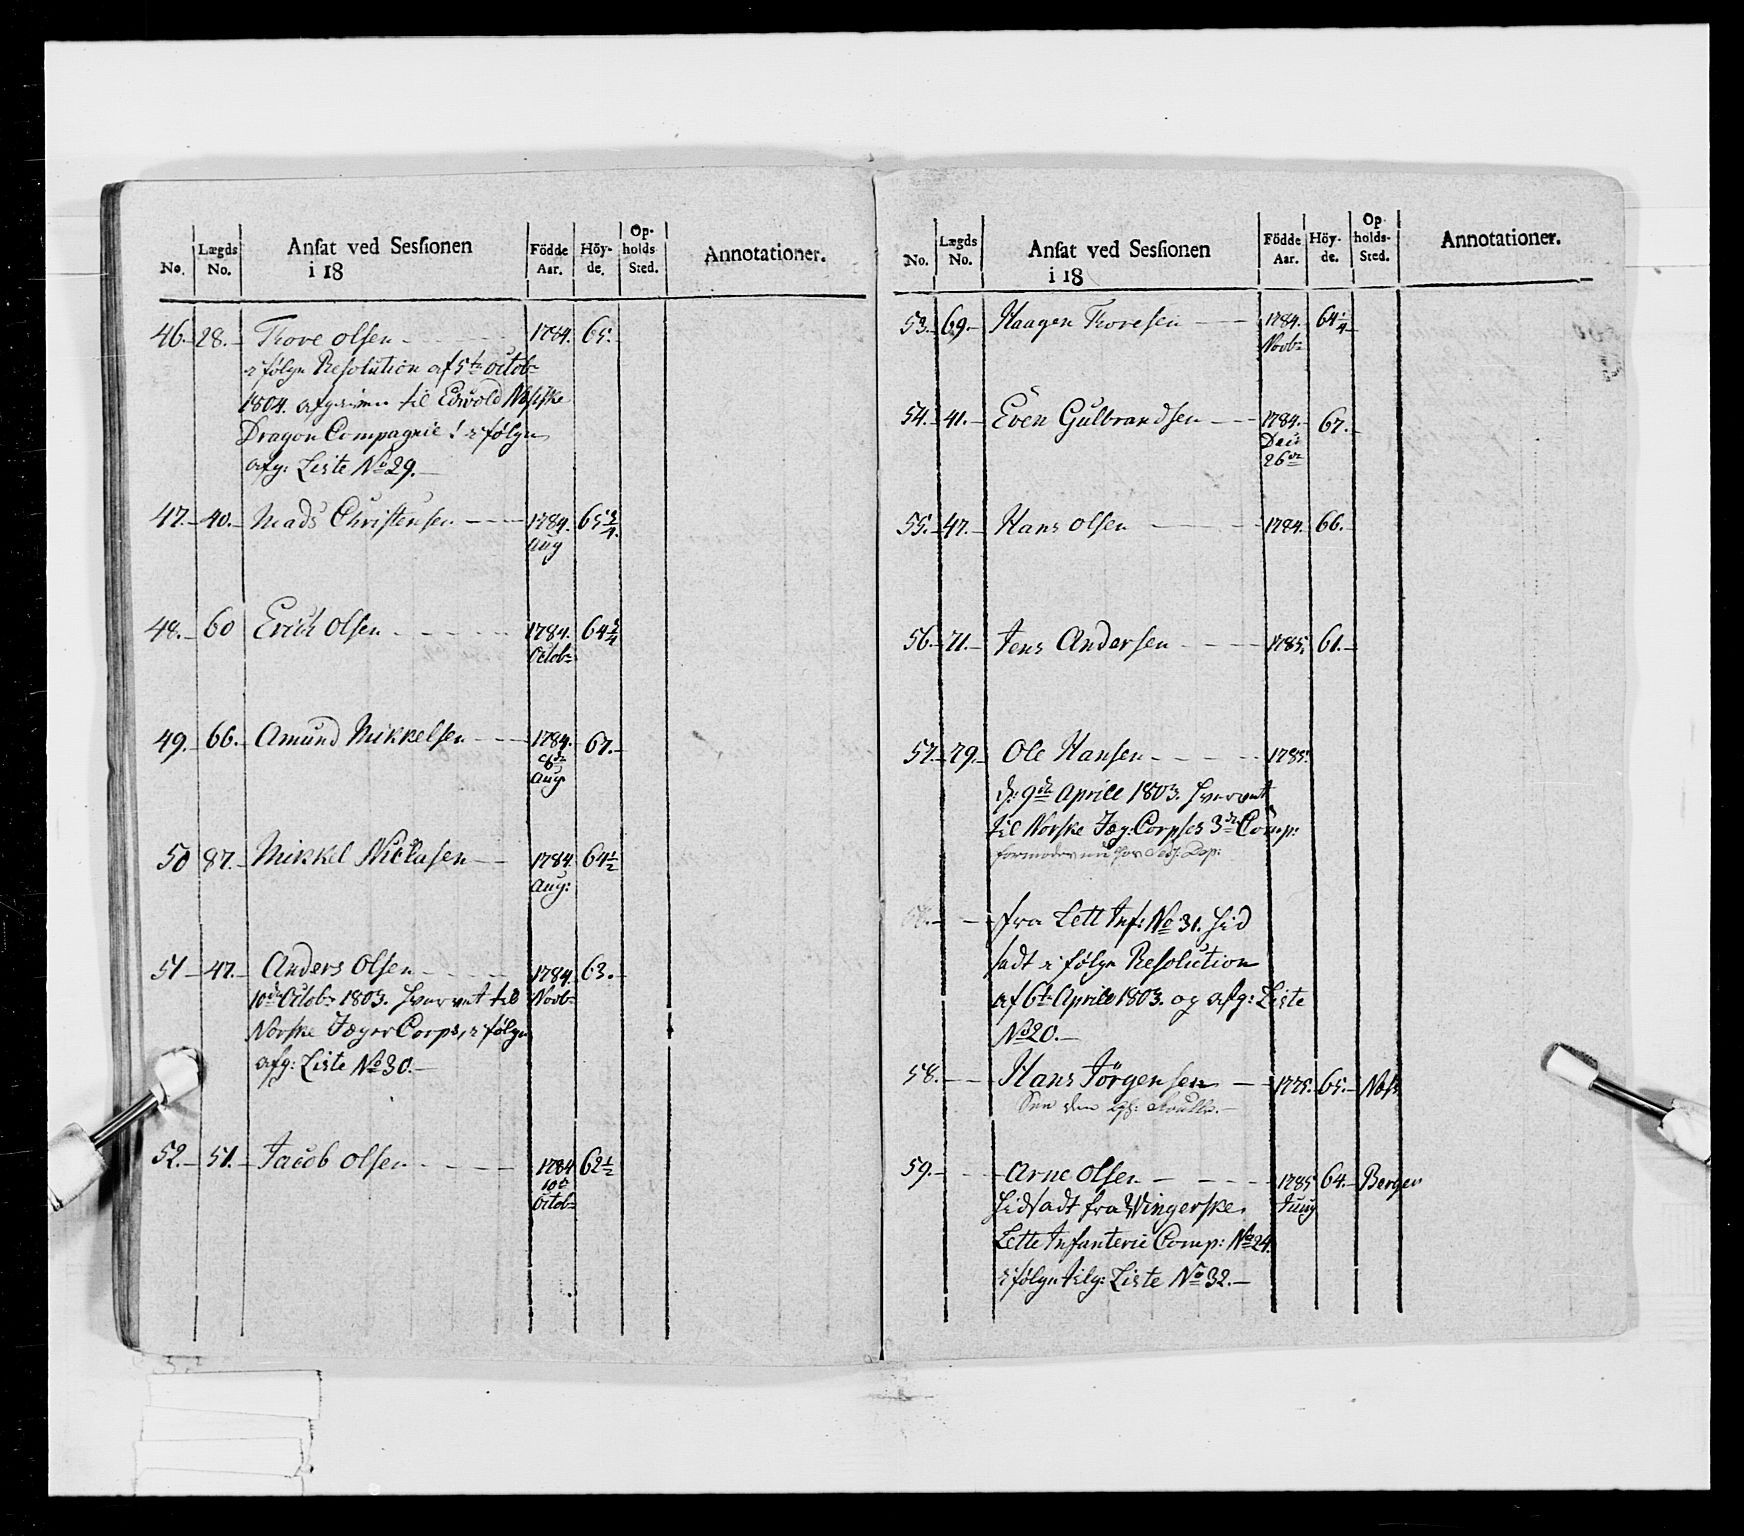 No. Lægds No. Ansat ved Sessionen i 18 Födde Aar. Höy-de. Op-holds Sted. Annotationer.
46.- 28.- Tove Olsen - 1784. 65.
ifölge Resolution af 5te Octobr
1804. afgiven til Edsvold Næsiske
Dragon Compagnie ! ifölge
afg: Liste No 29.-
47.- 40.- Mads Christensen - 1784. 65 3/4.
Aug
48.- 60 Erich Olsen - 1784. 64 3/4
Octobr
49.- 66.- Amund Mikkelsen - 1784. 67.-
Aug
50 87.- Mikkel Nielsen - 1784. 64 1/2
Aug:
51 - 47.- Anders Olsen - 1784. 63.-
10de Octobr 1803. hvervet til Novbr
Norske Jæger Corps, ifölge
afg: Liste No 30.-
52.- 51.- Jacob Olsen - 1784 62 1/2
10de
Octobr
No. Lægds No. Ansat ved Sessionen i 18 Födde Aar. Höy-de. Op-holds-Sted. Annotationer.
53.- 69.- Haagen Thoresen - 1784. 64 1/4
Novbr
54.- 41.- Even Gulbrandsen - 1784.- 67.-
26de
55.- 47.- Hans Olsen - 1784. 66.-
56.- 71.- Jens Andersen - 1785. 61.-
57.- 79.- Ole Hansen - 1785.
d: 9de Aprill 1803. hvervet
til Norske Jæg: Corpses 3die Comp:
fra Lett Inf: No 31. hid
sadt ifölge Resolution
af 6te Aprill 1803. og afg: Liste
No 20.-
58.- - Hans Jörgensen - 1775. 65.- Næss
59.- - Arne Olsen - 1785 64.- Berger
hidsadt fra Wingerske Juny
Lette Infanterie Comp: No 24
ifölge tilg: Liste No 32.-